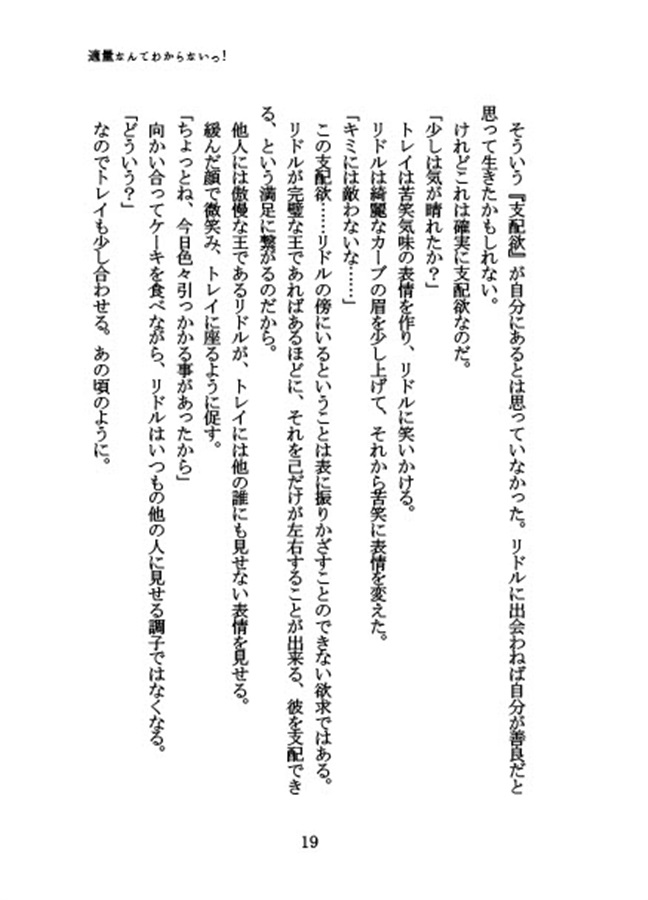 適量なんてわからないっ!
そういう『支配欲』が自分にあるとは思っていなかった。リドルに出会わねば自分が善良だと
思って生きたかもしれない。
けれどこれは確実に支配欲なのだ。
「少しは気が晴れたか?」
トレイは苦笑気味の表情を作り、リドルに笑いかける。
リドルは綺麗なカーブの眉を少し上げて、それから苦笑に表情を変えた。
「キミには敵わないな……」
この支配欲……リドルの傍にいるということは表に振りかざすことのできない欲求ではある。
リドルが完璧な王であればあるほどに、それを己だけが左右することが出来る、彼を支配でき
る、という満足に繋がるのだから。
他人には傲慢な王であるリドルが、トレイには他の誰にも見せない表情を見せる。
緩んだ顔で微笑み、トレイに座るように促す。
「ちょっとね、今日色々引っかかる事があったから」
向かい合ってケーキを食べながら、リドルはいつもの他の人に見せる調子ではなくなる。
「どういう?」
なのでトレイも少し合わせる。あの頃のように。
19